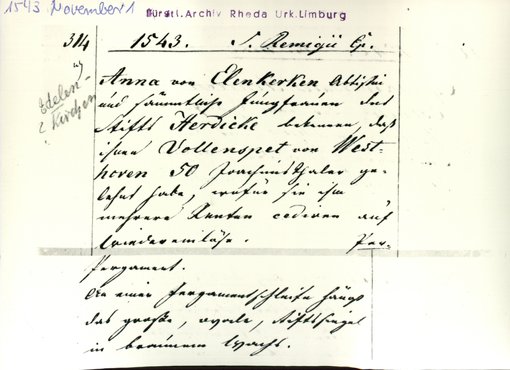 1543 November 1
Fürstl. Archiv Rheda Urk. Limburg
314 1543. S. Remigii Ep.
Edelen-
Kirchen
Anna von Elenkerken Abtissin
und sämmtliche Jungfrauen des
Stifts Herdicke bekennen, daß
ihnen Vollenspet von West-
hoven 50 Joachimsthaler ge-
lehnt habe, wofür sie ihm
mehrere Renten cediren auf
Wiedereinlöse. Per-
Pergament.
An einer Pergamentschleife hängt
das große, ovale, Stiftssiegel
in braunem Wachs.